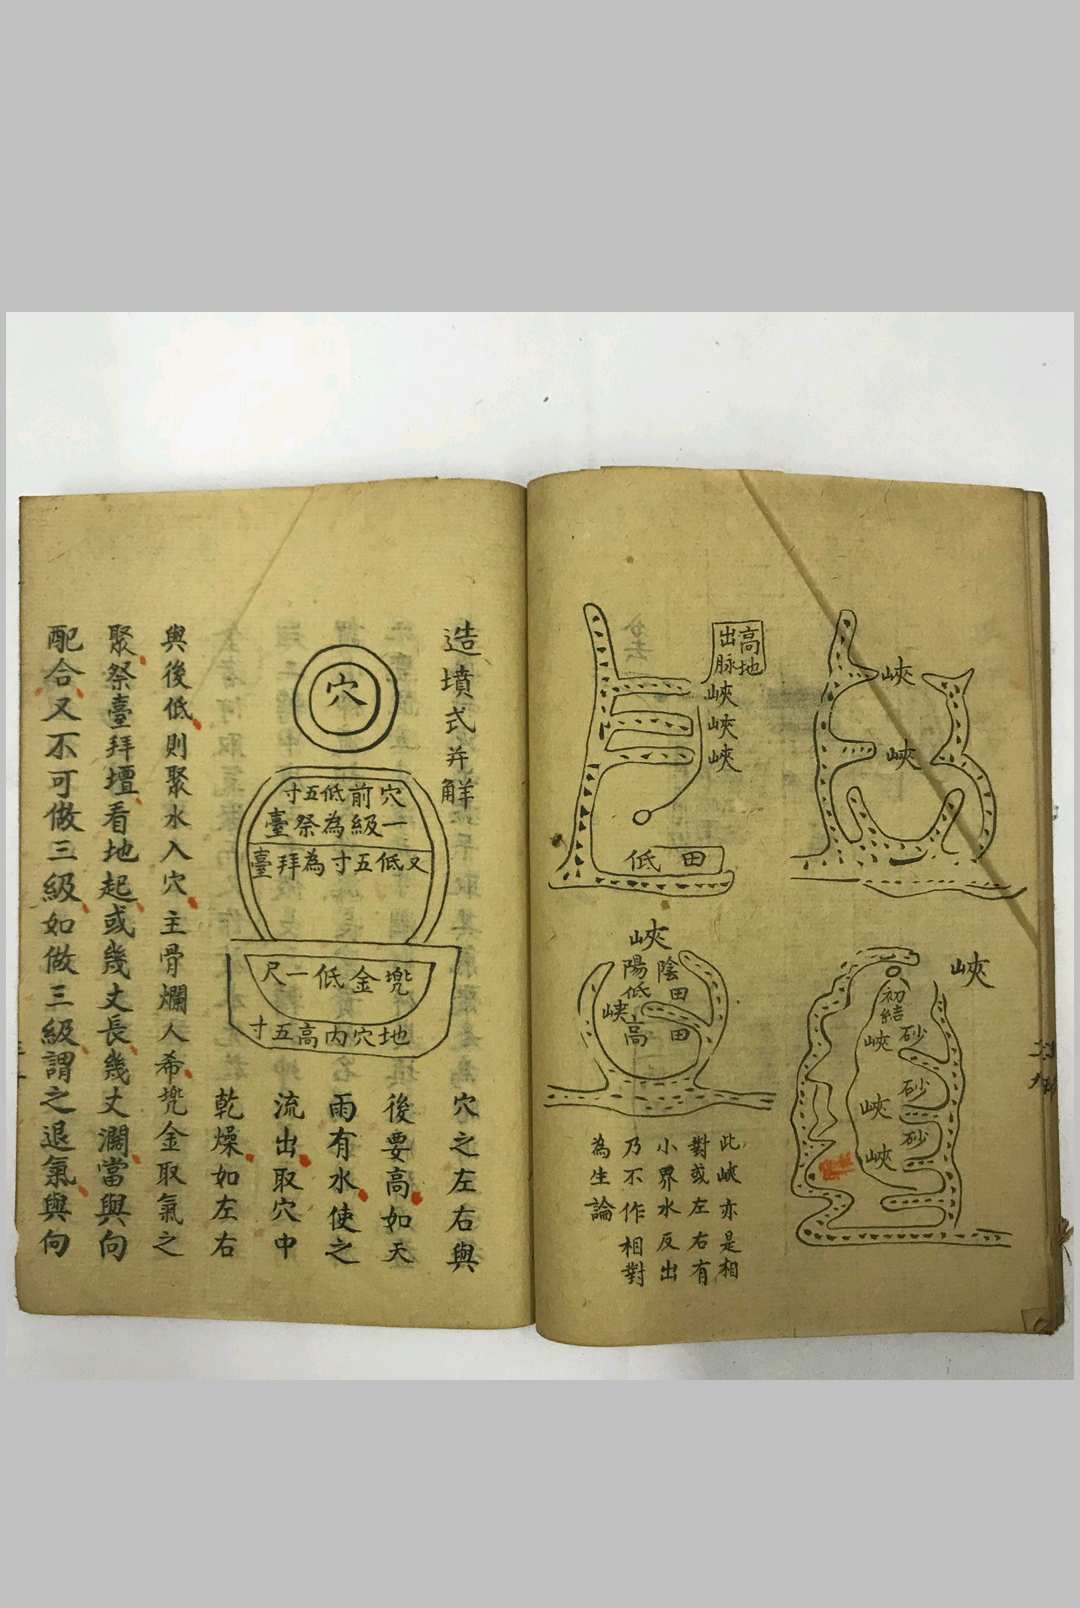 峽
峽
高地
出脉
峽
峽
峽
田低
峽
初結
砂
峽
砂
峽
砂
峽
峽
陰田
田
陽低
峽
高
此峽亦是相
對或左右有
小界水反出
乃不作相對
為生論
造墳式并解
穴之左右與
後要高如天
雨有水使之
流出取穴中
乾燥如左右
穴
穴前低五寸
一級為祭臺
又低五寸為拜臺
兠金低一尺
地穴內高五寸
與後低則聚水入穴主骨爛人希兠金取氣之
聚祭臺拜壇看地起或幾丈長幾丈濶當與向
配合又不可做三級如做三級謂之退氣與向